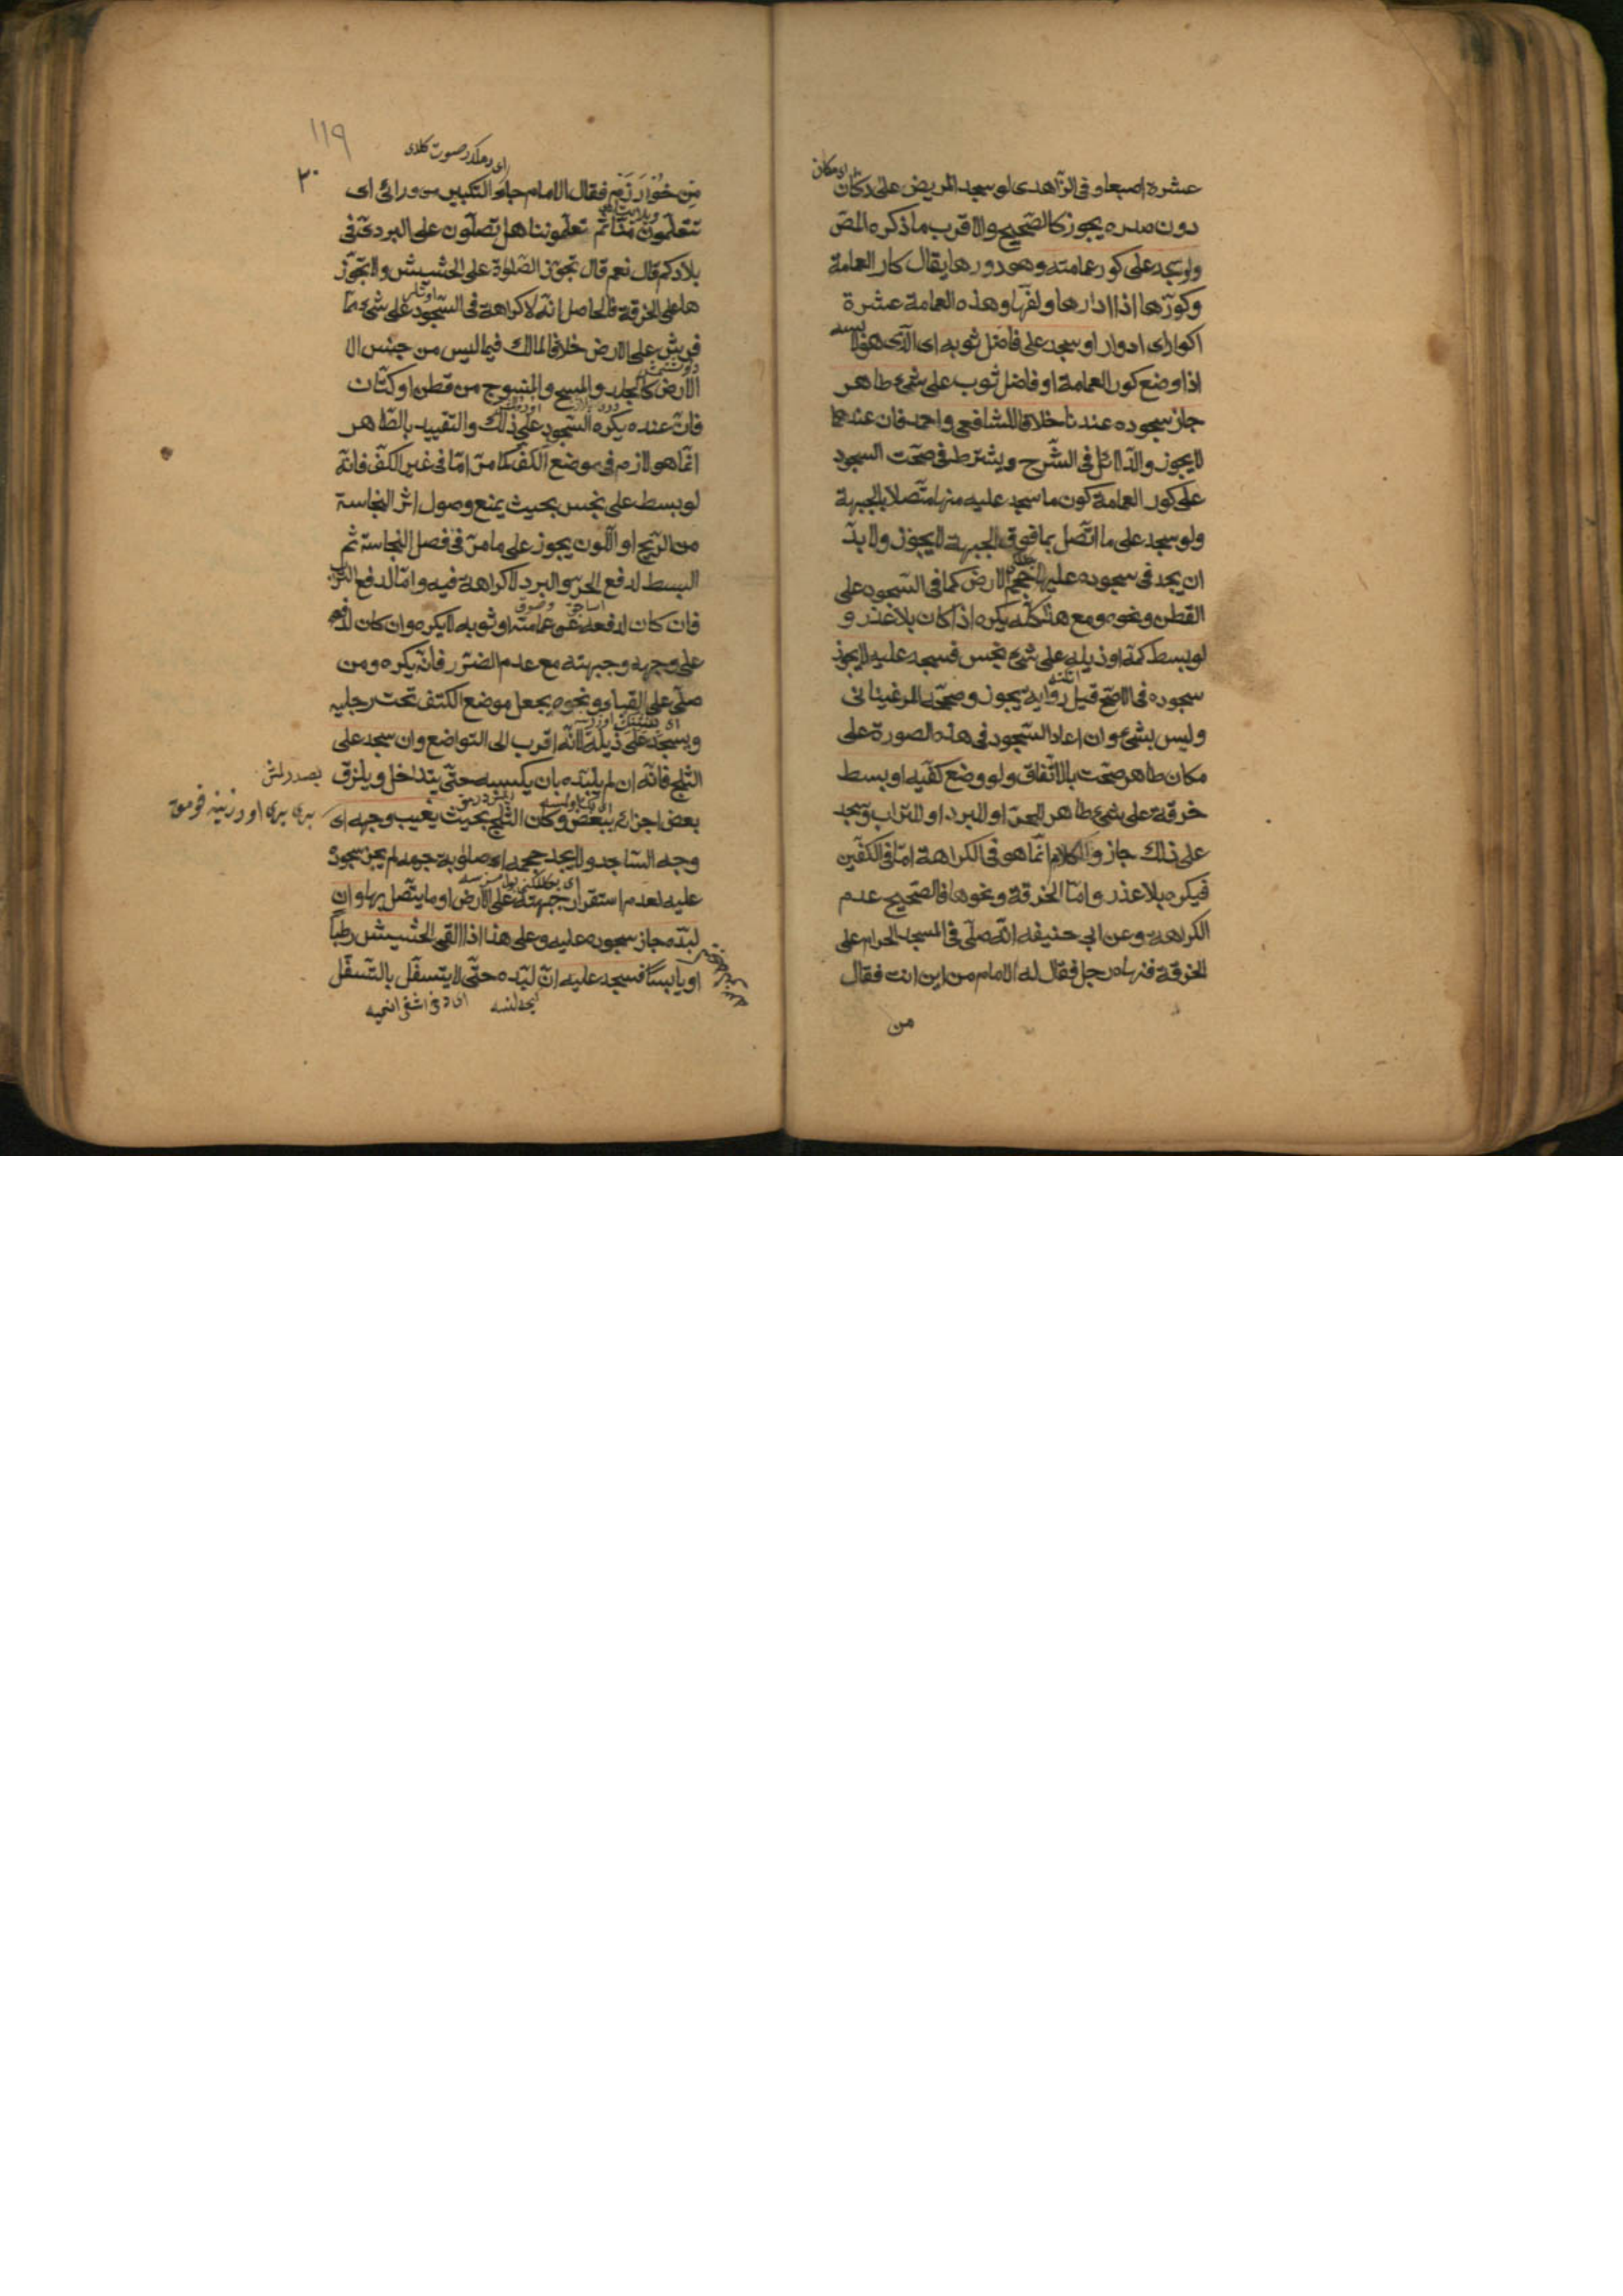 عشرة اصبعا وفى الزاهدى لو سجد المريض على دكان
دون صدره يجوز كالصّحيح والاقرب ما ذكره المص
ولو سجد على كور عمامته وهو دورها يقال كار العمامة
وكوّرها اذا ادارها ولفّها وهذه العمامة عشرة
اكوار اى ادوار او سجد على فاضل ثوبه اى الّذى هو لابسه
اذا وضع كور العمامة او فاضل ثوب على شئ طاهر
جاز سجوده عندنا خلافا للشافعى واحمد فان عندهما
لا يجوز والدلائل فى الشّرح ويشترط فى صحّت السجود
على كور العمامة كون ما سجد عليه منها متّصلا بالجبهة
ولو سجد على ما اتّصل بما فوق الجبهة لا يجوز ولا بدّ
ان يجد فى سجوده عليها حجم الارض كما فى السّجود على
القطن ونحوه ومع هذا كلّه يكره اذا كان بلا عذر و
لو بسط كمّه او ذيله على شئ نجس فسجد عليه لا يجوز
سجوده فى الاصح قيل رواية يجوز وصحّحه المرغينانى
وليس بشئ وان اعاد السّجود فى هذه الصورة على
مكان طاهر صحّت بالاتّفاق ولو وضع كفّيه او بسط
خرقة على شئ طاهر للحرّ او للبرد او للتراب وسجد
على ذلك جاز والكلام انّما هو فى الكراهة امّا فى الكفّين
فيكره بلا عذر وامّا الخرقة ونحوها فالصّحيح عدم
الكراهة وعن ابى حنيفه انّه صلّى فى المسجد الحرام على
الخرقة فنهاه رجل فقال له الامام من اين انت فقال
من
١١٩
٣٠
من خُوَارَزْم فقال الامام جاء التكبير من ورائى اى
تتعلّمون منّا ثم تعلّموننا هل تصلّون على البردى فى
بلادكم قال نعم قال تجوّز الصّلوة على الحشيش ولا تجوّز
ها على الخرقة فالحاصل انّه لا كراهة فى السّجود على شئ ممّا
فرش على الارض خلافا لمالك فيما ليس من جنس الا
الارض كالجلد والمسح والمنسوج من قطن او كتّان
فانّ عنده يكره السّجود على ذلك والتقييد بالطّاهر
انّما هو لازم فى موضع الكفّ كما مرّ امّا فى غير الكفّ فانّه
لو بسط على نجس بحيث يمنع وصول اثر النجاسة
من الرّيح او اللّون يجوز على ما مرّ فى فصل النجاسة ثم
البسط لدفع الحرّ والبرد لا كراهة فيه وامّا لدفع التراب
فان كان لدفعه عن عمامته او ثوبه لا يكره وان كان لدفعه
على وجهه وجبهته مع عدم الضرر فانّه يكره ومن
صلّى على القباء ونحوه يجعل موضع الكتف تحت رجليه
ويسجد على ذيله لانّه اقرب الى التواضع وان سجد على
الثلج فانّه ان لم يلبّده بان يكبسه حتّى يتداخل ويلزق
بعض اجزائه ببعض وكان الثلج بحيث يغيب وجهه اى
وجه السّاجد ولا يجد حجمه اى صلابة جرمه لم يجز سجوده
عليه لعدم استقرار جبهته على الارض او ما يتّصل بها وان
لبّده جاز سجوده عليه وعلى هذا اذا القى الحشيش رطبا
او يابسا فسجد عليه ان لبّده حتّى لا يتسفّل بالتّسفّل